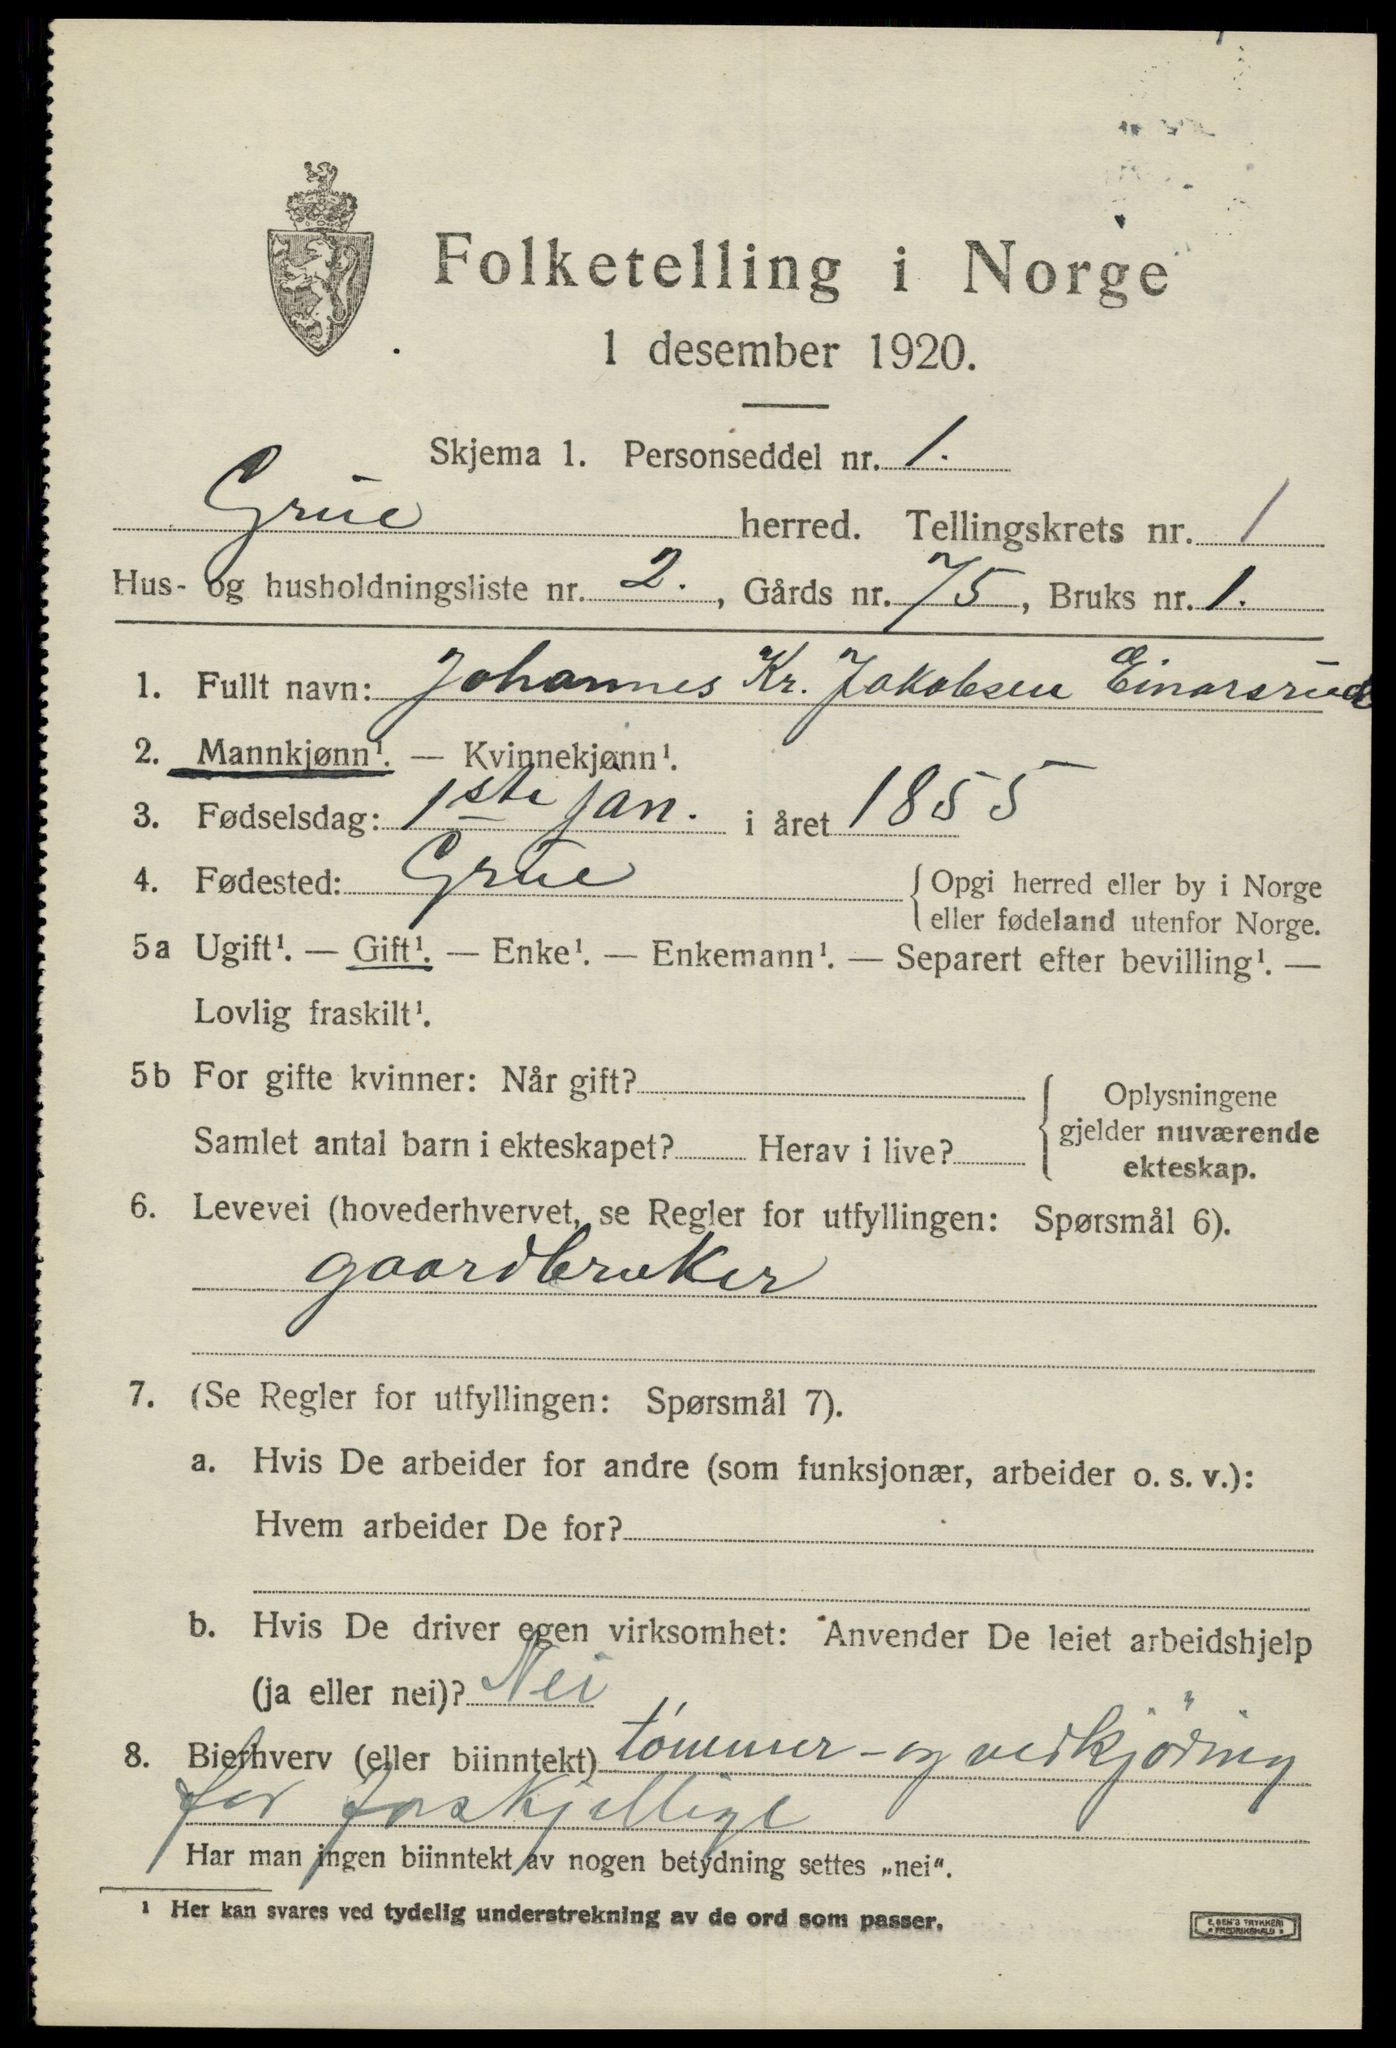 Folketelling i Norge
1 desember 1920.
Skjema 1. Personseddel nr. 1.
Grue herred. Tellingskrets nr. 1
Hus- og husholdningsliste nr. 2., Gårds nr. 75, Bruks nr. 1.
1. Fullt navn: Johannes Kr. Jakobsen Einarsrud
2. Mannkjønn¹. — Kvinnekjønn¹.
3. Fødselsdag: 1ste jan. i året 1855
4. Fødested: Grue { Opgi herred eller by i Norge
eller fødeland utenfor Norge.
5a Ugift¹. — Gift¹. — Enke¹. — Enkemann¹. — Separert efter bevilling¹. —
Lovlig fraskilt¹.
5b For gifte kvinner: Når gift?
Samlet antal barn i ekteskapet? Herav i live?
{ Oplysningene
gjelder nuværende
ekteskap.
6. Levevei (hovederhvervet, se Regler for utfyllingen: Spørsmål 6).
gaardbruker
7. (Se Regler for utfyllingen: Spørsmål 7).
a. Hvis De arbeider for andre (som funksjonær, arbeider o. s. v.):
Hvem arbeider De for?
b. Hvis De driver egen virksomhet: Anvender De leiet arbeidshjelp
(ja eller nei)? Nei
8. Bierhverv (eller biinntekt) tømmer- og vedkjöring
for forskjellige
Har man ingen biinntekt av nogen betydning settes „nei“.
¹ Her kan svares ved tydelig understrekning av de ord som passer.
E. SEM'S TRYKKERI
FREDRIKSHALD